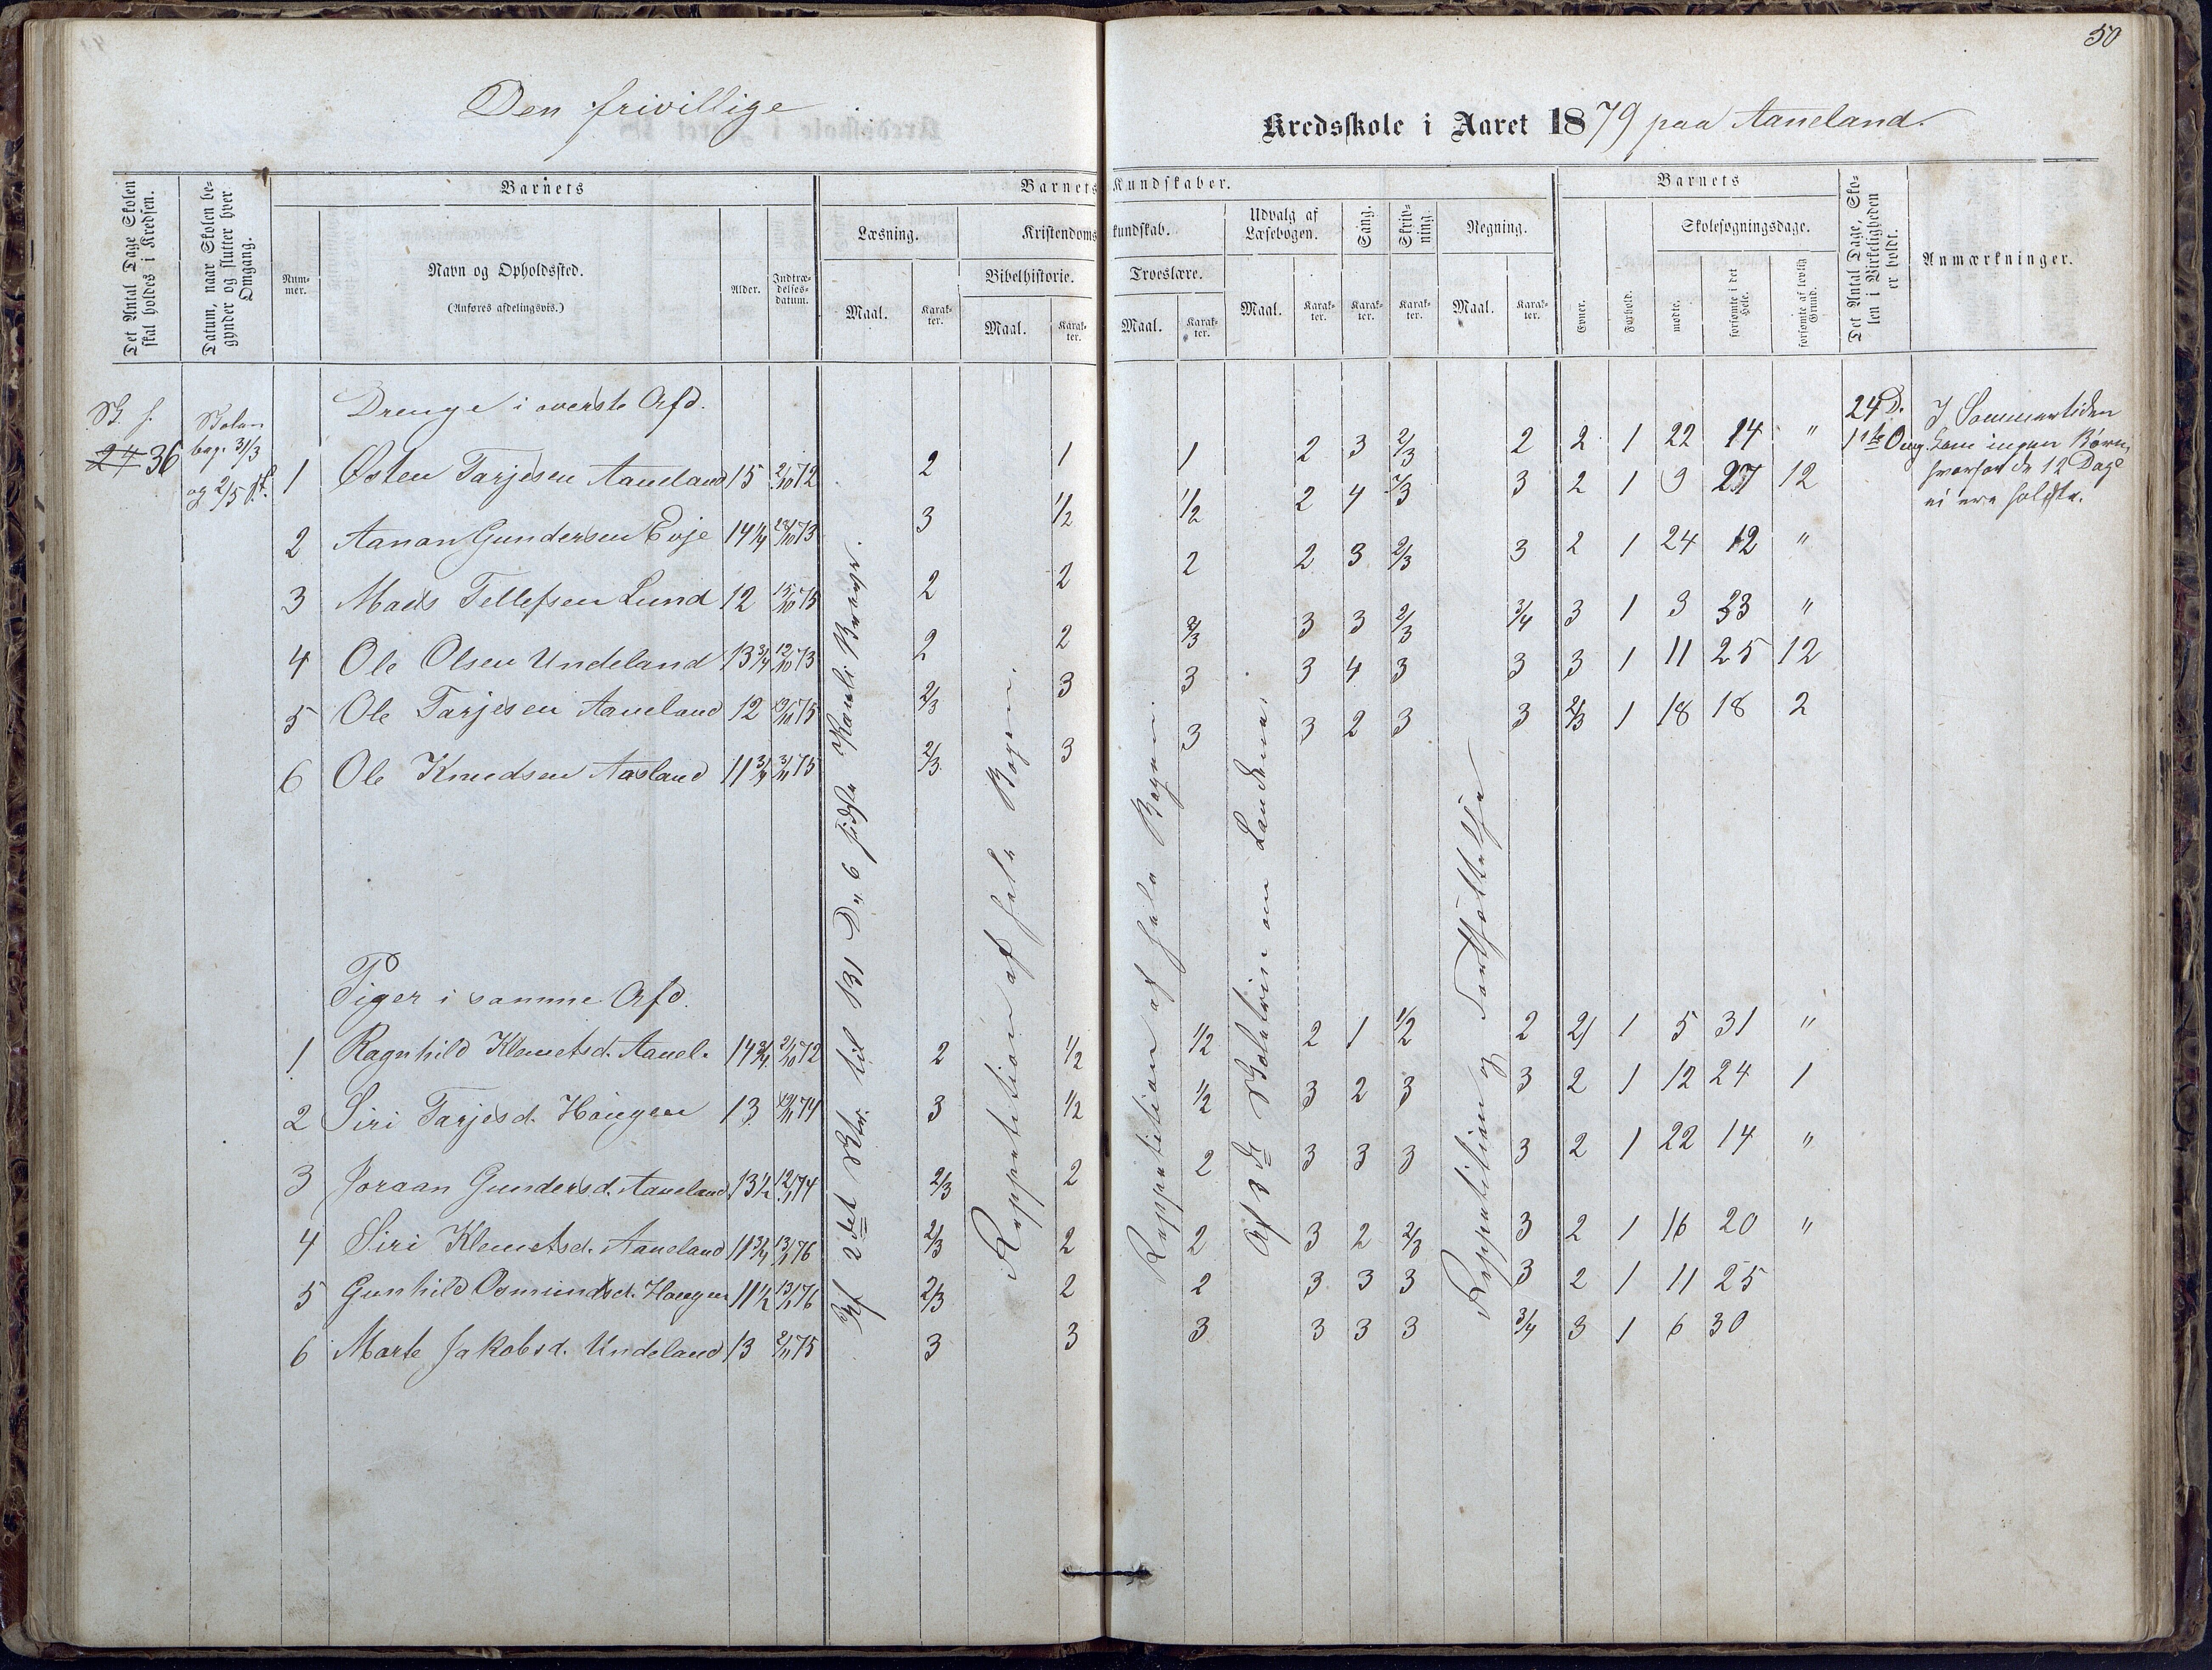 50
Den frivillige Kredsskole i Aaret 1879 paa Aaneland.
Det Antal Dage Skolen skal holdes i Kredsen.
Datum, naar Skolen begynder og slutter hver Omgang.
Barnets
Nummer.
Navn og Opholdssted.
(Anføres afdelingsvis.)
Alder.
Indtrædelsesdatum.
Barnets Kundskaber.
Læsning.
Maal.
Karakter.
Kristendomskundskab.
Bibelhistorie.
Maal.
Karakter.
Troeslære.
Maal.
Karakter.
Udvalg af Læsebogen.
Maal.
Karakter.
Sang.
Karakter.
Skrivning.
Karakter.
Regning.
Maal.
Karakter.
Barnets
Evner.
Forhold.
Skolesøgningsdage.
mødte.
forsømte i det Hele.
forsømte af lovlig Grund.
Det Antal Dage, Skolen i Virkeligheden er holdt.
Anmærkninger.
24 36
Skolen
beg. 31/3
og 2/5
Drenge i øverste Afd.
1 Østen Tarjesen Aaneland 15 2/10 72 2 1 1 2 3 2/3 2 2 1 22 14 "
2 Aanon Gundersen Evje 14 1/4 73 3 1/2 1/2 2 4 2/3 3 2 1 9 27 12
3 Mads Tellefsen Lund 12 15/10 75 2 2 2 2 3 2/3 3 2 1 24 12 "
4 Ole Olsen Undeland 13 3/4 12/10 73 2 2 2/3 3 3 2/3 3/4 3 1 3 33 "
5 Ole Tarjesen Aaneland 12 75 2/3 3 3 3 4 3 3 3 1 11 25 12
6 Ole Knudsen Aasland 11 3/4 3/11 75 2/3 3 3 3 2 3 3 2/3 1 18 18 2
24 D.
1ste Omg.
I Sommertiden
kom ingen Børn,
hvorfor de 12 Dage
ei ere holdte.
Af 2det Str. til 131 De 6 sidste
Reppetition af hele Bogen.
Reppetition af hele Bogen.
Af 3de om Landene.
Reppetition og Fortsættelse
Piger i samme Afd.
1 Ragnhild Klemetsd. Aanel. 14 3/4 2/10 72 2 1/2 1/2 2 1 1/2 2 2 1 5 31 "
2 Siri Tarjesd. Haugen 13 74 3 1/2 1/2 3 2 3 3 2 1 12 24 1
3 Joraan Gundersd. Aaneland 13 1/2 12/1 74 2/3 2 2 3 3 3 3 2 1 22 14 "
4 Siri Klemetsd. Aaneland 11 3/4 13/1 76 2/3 2 2 3 2 2/3 3 2 1 16 20 "
5 Gunhild Osmundsd. Haugen 11 1/2 13/1 76 2/3 2 2 3 3 3 3 2 1 11 25
6 Marte Jakobsd. Undeland 13 2/11 75 3 3 3 3 3 3 3/4 3 1 6 30